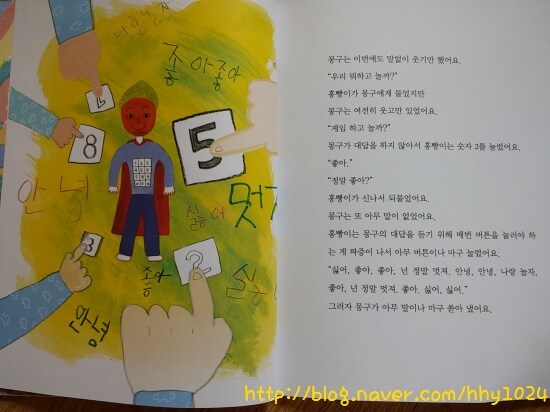 나랑 놀자
좋아좋아
6
8
5
안녕
멋져
싫어
3
2
좋아
싫어
안녕
몽구는 이번에도 말없이 웃기만 했어요.
"우리 뭐하고 놀까?"
홍빵이가 몽구에게 물었지만
몽구는 여전히 웃고만 있었어요.
"게임 하고 놀까?"
몽구가 대답을 하지 않아서 홍빵이는 숫자 2를 눌렀어요.
"좋아."
"정말 좋아?"
홍빵이가 신나서 되물었어요.
몽구는 또 아무 말이 없었어요.
홍빵이는 몽구의 대답을 듣기 위해 매번 버튼을 눌러야 하
는 게 짜증이 나서 아무 버튼이나 마구 눌렀어요.
"싫어, 좋아, 좋아, 넌 정말 멋져, 안녕, 안녕, 나랑 놀자,
좋아, 넌 정말 멋져, 좋아, 싫어, 싫어."
그러자 몽구가 아무 말이나 마구 쏟아 냈어요.
http://blog.naver.com/hhy1024